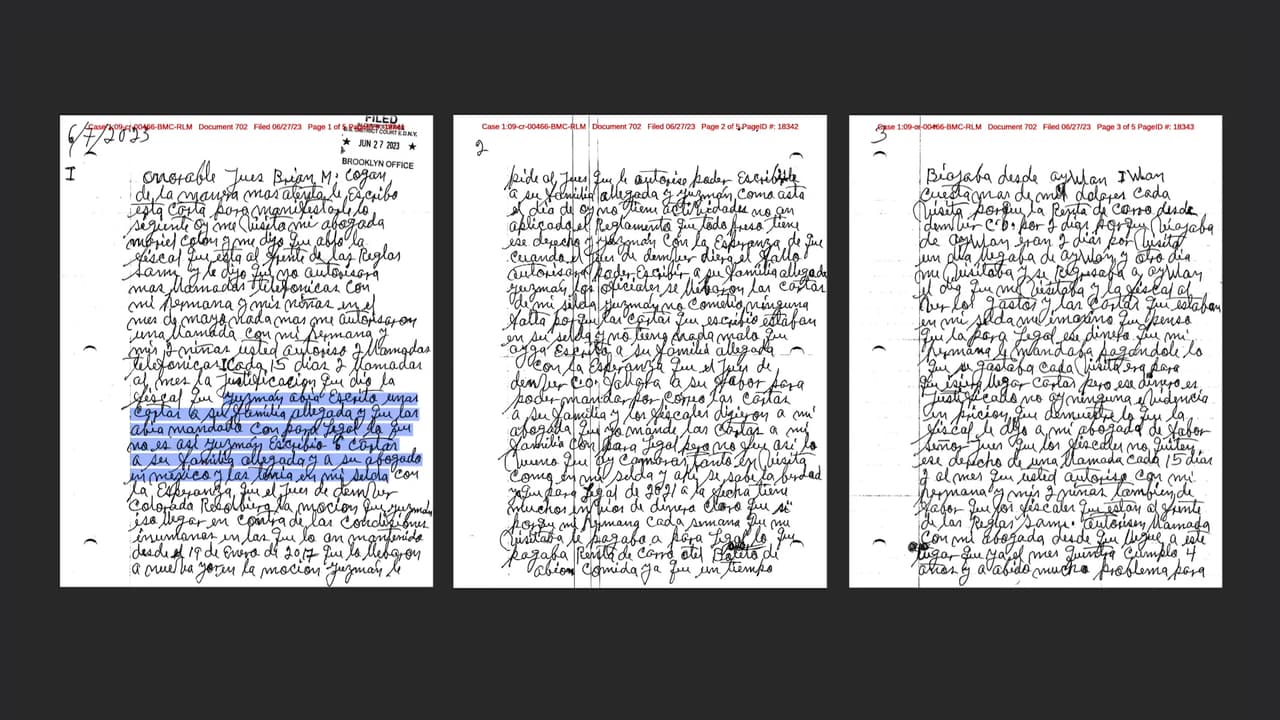 6/7/2023
Case 1:09-cr-00466-BMC-RLM Document 702 Filed 06/27/23 Page 1 of 5 PageID #: 18341
FILED
U.S. DISTRICT COURT E.D.N.Y.
★ JUN 27 2023 ★
BROOKLYN OFFICE
I
onorable Jues Brian M: cogan
de la manera mas atenta le escribo
esta carta para manifestarle lo
segente oy me visito mi abogada
mariel colon y me dijo que ablo la
fiscal que esta al frente de las Reglas
Sam: y le dijo que no autorisara
mas llamadas telefonicas con
mi hermana y mis niñas en el
mes de mayo nada mas me autorisaron
una llamada con mi hermana y
mis 2 niñas usted autoriso 2 llamadas
telefonicas cada 15 dias 2 llamadas
al mes la Justificacion que dio la
fiscal que guzmán abia Escrito unas
cartas a su familia allegada y que las
abia mandado con para legal lo que
no es asi guzmán Escribio 8 cartas
a su familia allegada y a su abogado
en mexico y las tenia en mi selda con
la Esperanza que el Jues de dember
Colorado Resolbiera la mocion que guzman
iso llegar en contra de las condisiones
inumanas en las que lo an mantenido
desde el 19 de Enero de 2017 que lo llebaron
a nueva yor en la mocion guzmán le
Case 1:09-cr-00466-BMC-RLM Document 702 Filed 06/27/23 Page 2 of 5 PageID #: 18342
2
pide al Jues que le autorise poder Escribirle
a su familia allegada y guzmán como asta
el dia de oy no tiene actibidades no an
aplicado el Reglamento que todo preso tiene
ese derecho y guzmán con la Esperanza de que
cuando el Jues de dember diera el fallo
autorisara poder Escribir a su familia allegada
guzmán los oficiales se llebaron las cartas
de mi selda guzmán no cometio ninguna
falta porque las cartas que escribio estaban
en su selda y no tiene nada malo que
ayga Escrito a su familia allegada
con la Esperanza que el Jues de
dember co: fallara a su fabor para
poder mandar por correo las cartas
a su familia y los fiscales dijeron a mi
abogada que yo mande las cartas a mi
familia con para legal pero no fue asi lo
bueno que ay camaras tanto en visita
como en mi selda y ahi se sabe la berdad
y que para legal de 2021 a la fecha tiene
muchos enbios de dinero claro que si
porque mi hermana cada semana que me
visitaba le pagaba a para legal lo que
pagaba Renta de carro otel Boleto de
abion comida ya que un tiempo
Case 1:09-cr-00466-BMC-RLM Document 702 Filed 06/27/23 Page 3 of 5 PageID #: 18343
3
Biajaba desde
cuesta mas de mil dolares cada
visita porque la Renta de carro desde
dember co: por 2 dias porque biajaba
de eran 2 dias por visita
un dia llegaba de y otro dia
me visitaba y se regresaba a
el dia que me visitaba y la fiscal al
ver los gastos y las cartas que estaban
en mi selda me imagino que penso
que la para legal ese dinero que mi
hermana le mandaba pagandole lo
que se gastaba cada visita era para
que isiera llegar cartas pero ese dinero es
Justificado no ay ninguna evidencia
en pricion que demuestre lo que la
fiscal le dijo a mi abogada de fabor
señor Jues que los fiscales no quiten
ese derecho de una llamada cada 15 dias
2 al mes que usted autoriso con mi
hermana y mis 2 niñas tambien de
fabor que los fiscales que estan al frente
de las Reglas Sam: autorisen llamada
con mi abogada desde que llegue a este
lugar que ya el mes que entra cumplo 4
años y a abido mucho problema para